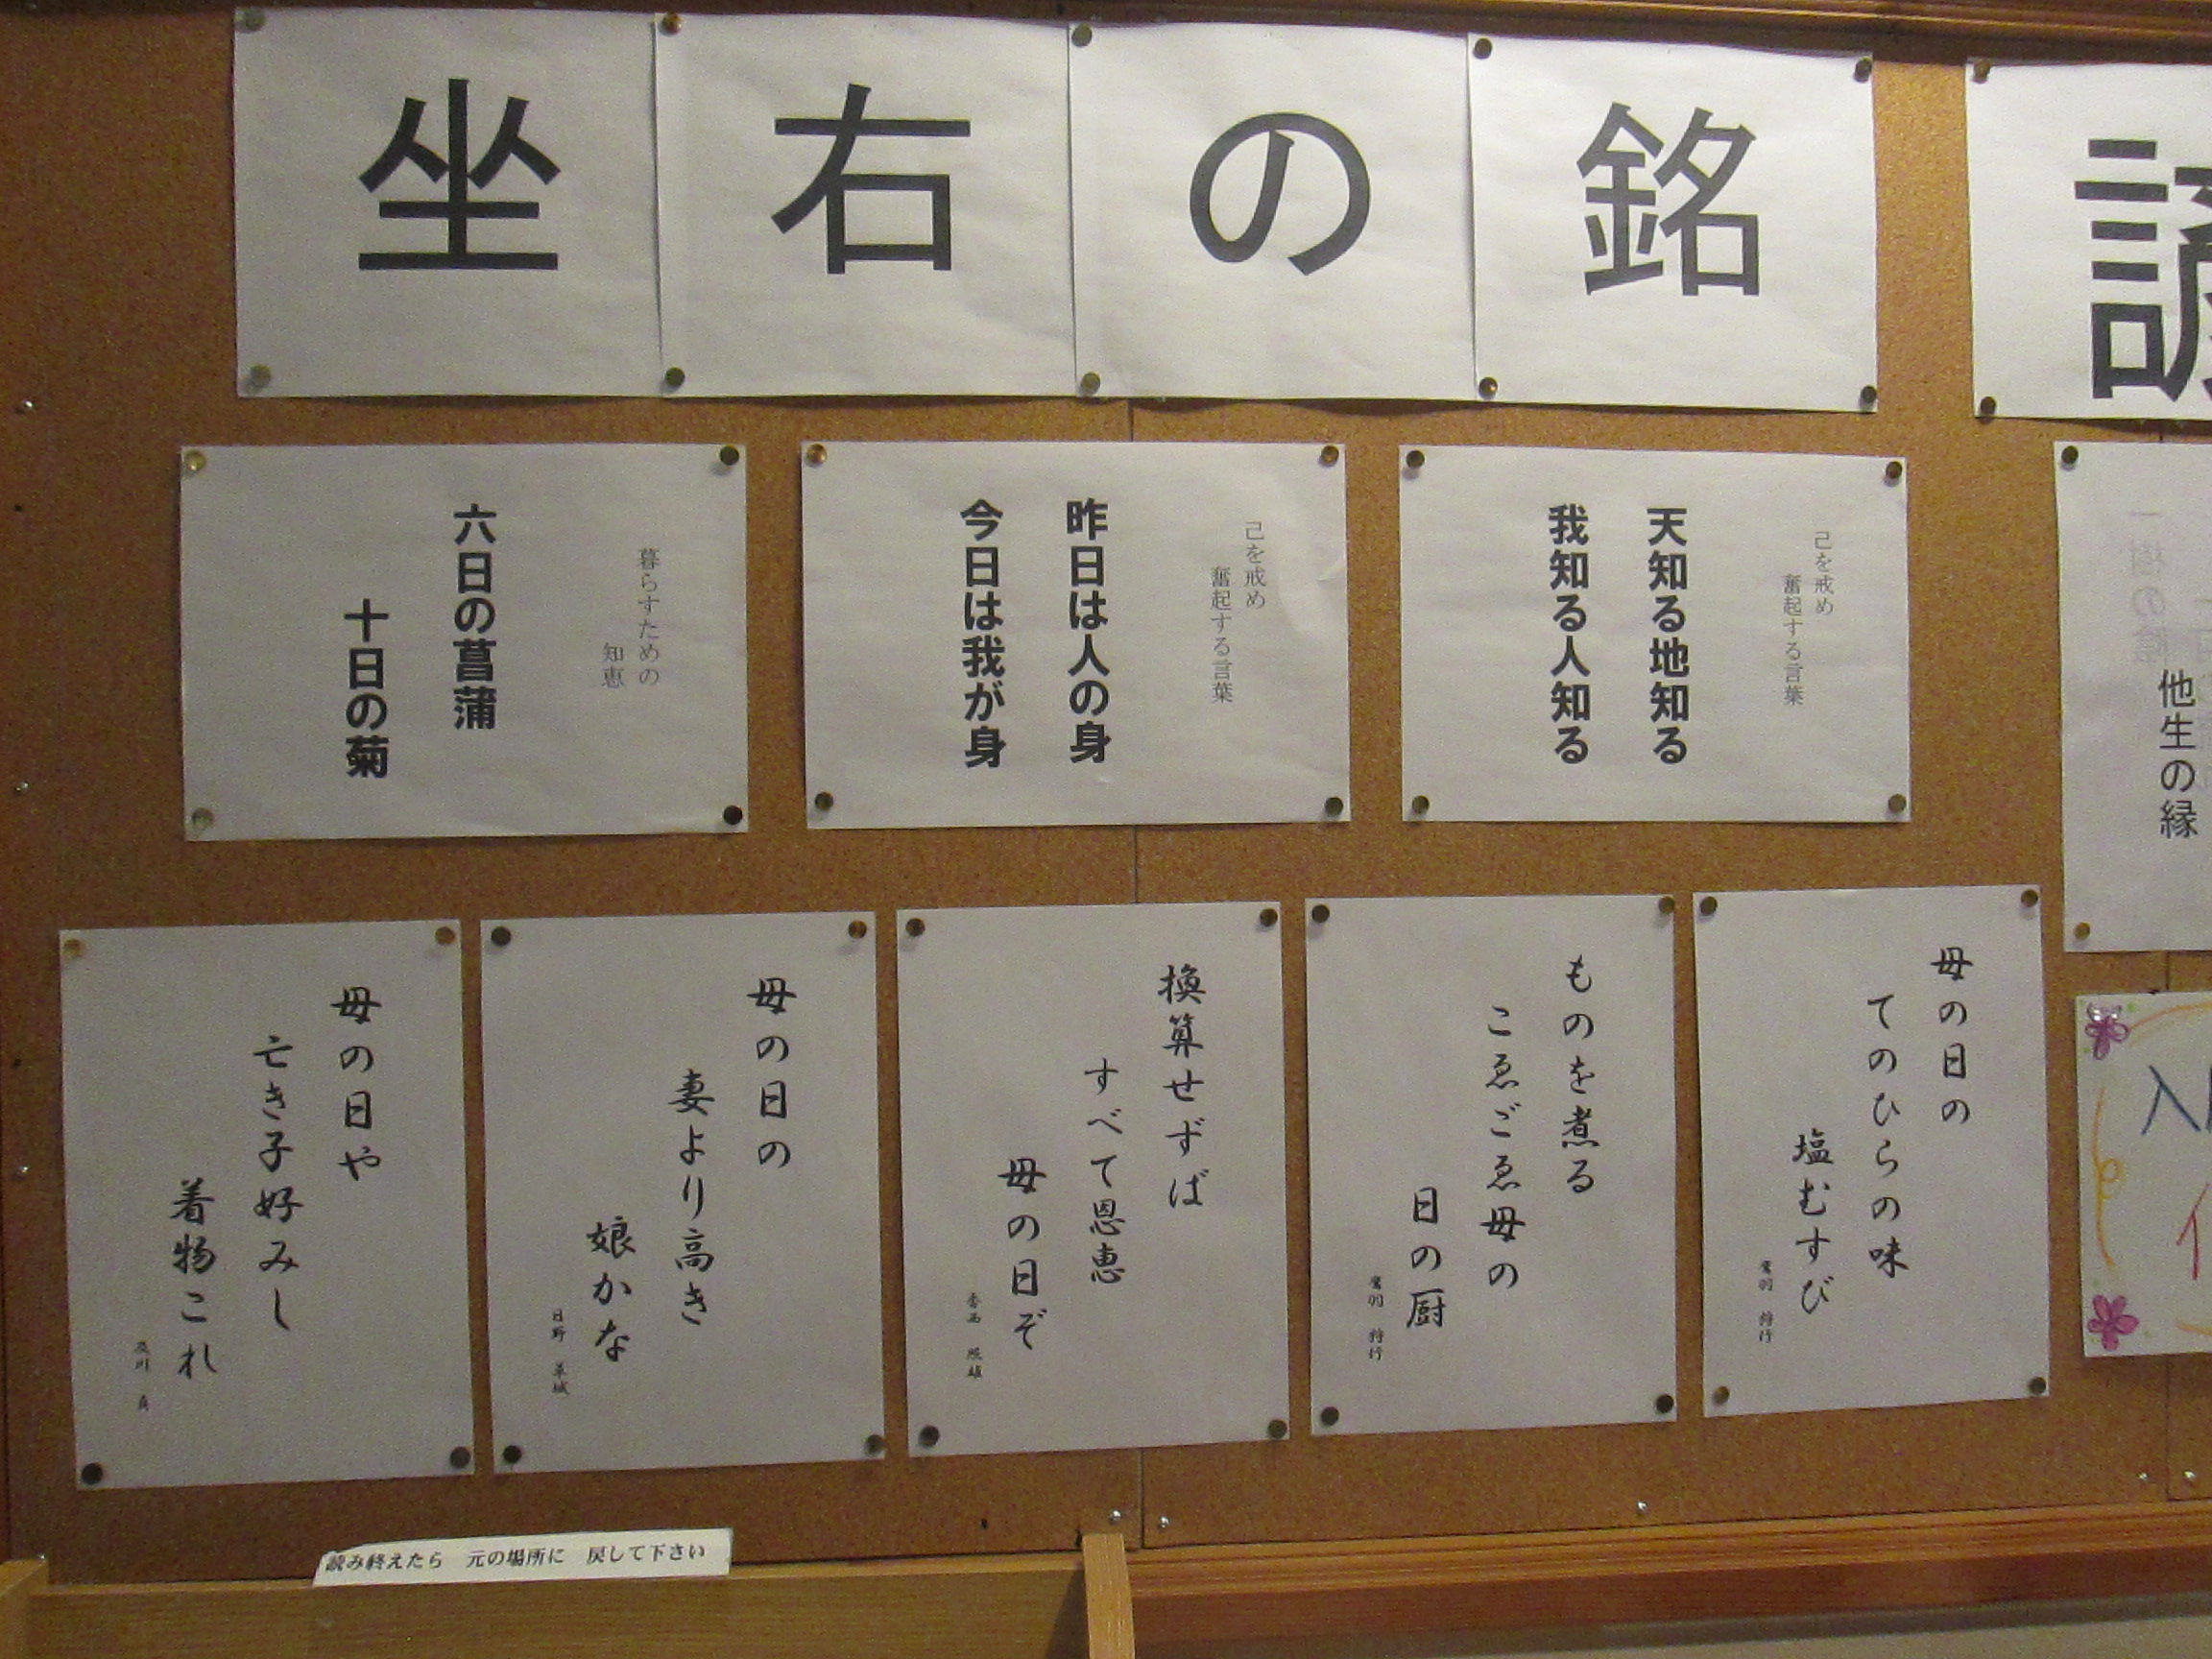 坐右の銘
諺
己を戒め
奮起する言葉
天知る地知る
我知る人知る
己を戒め
奮起する言葉
昨日は人の身
今日は我が身
暮らすための
知恵
六日の菖蒲
十日の菊
一樹の陰
他生の縁
母の日の
てのひらの味
塩むすび
鷹羽 狩行
ものを煮る
こゑごゑ母の
日の厨
鷹羽 狩行
換算せずば
すべて恩恵
母の日ぞ
香西 照雄
母の日の
妻より高き
娘かな
日野 草城
母の日や
亡き子好みし
着物これ
及川 貞
読み終えたら 元の場所に 戻して下さい